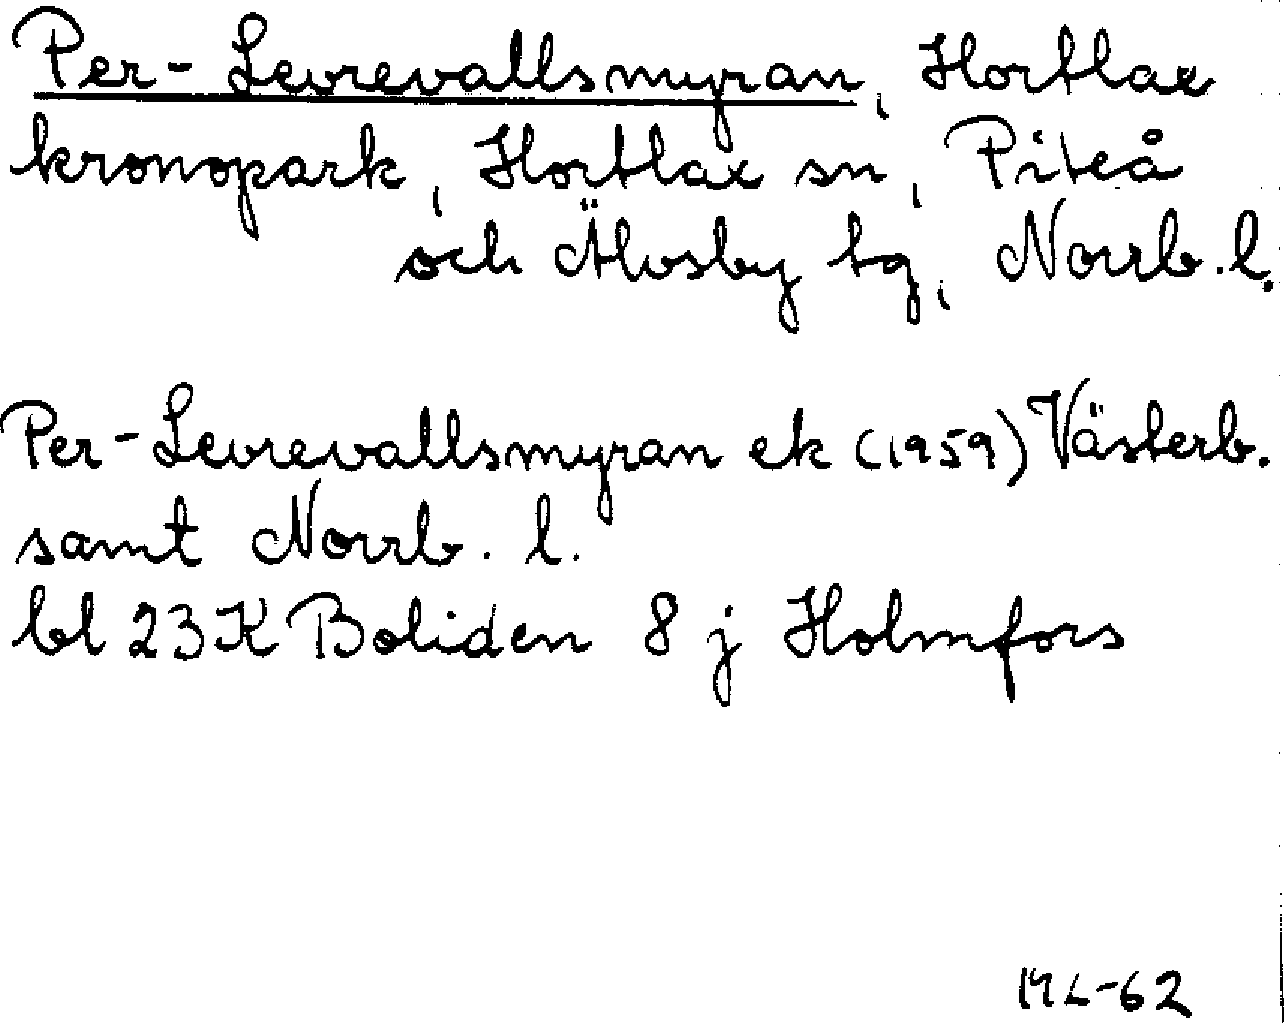 Per-Levrevallsmyran, Hortlax
kronopark, Hortlax sn, Piteå
och Älvsby tg, Norrb. l.
Per-Levrevallsmyran ek (1959) Västerb.
samt Norrb. l.
bl 23K Boliden 8 j Holmfors
ML-62